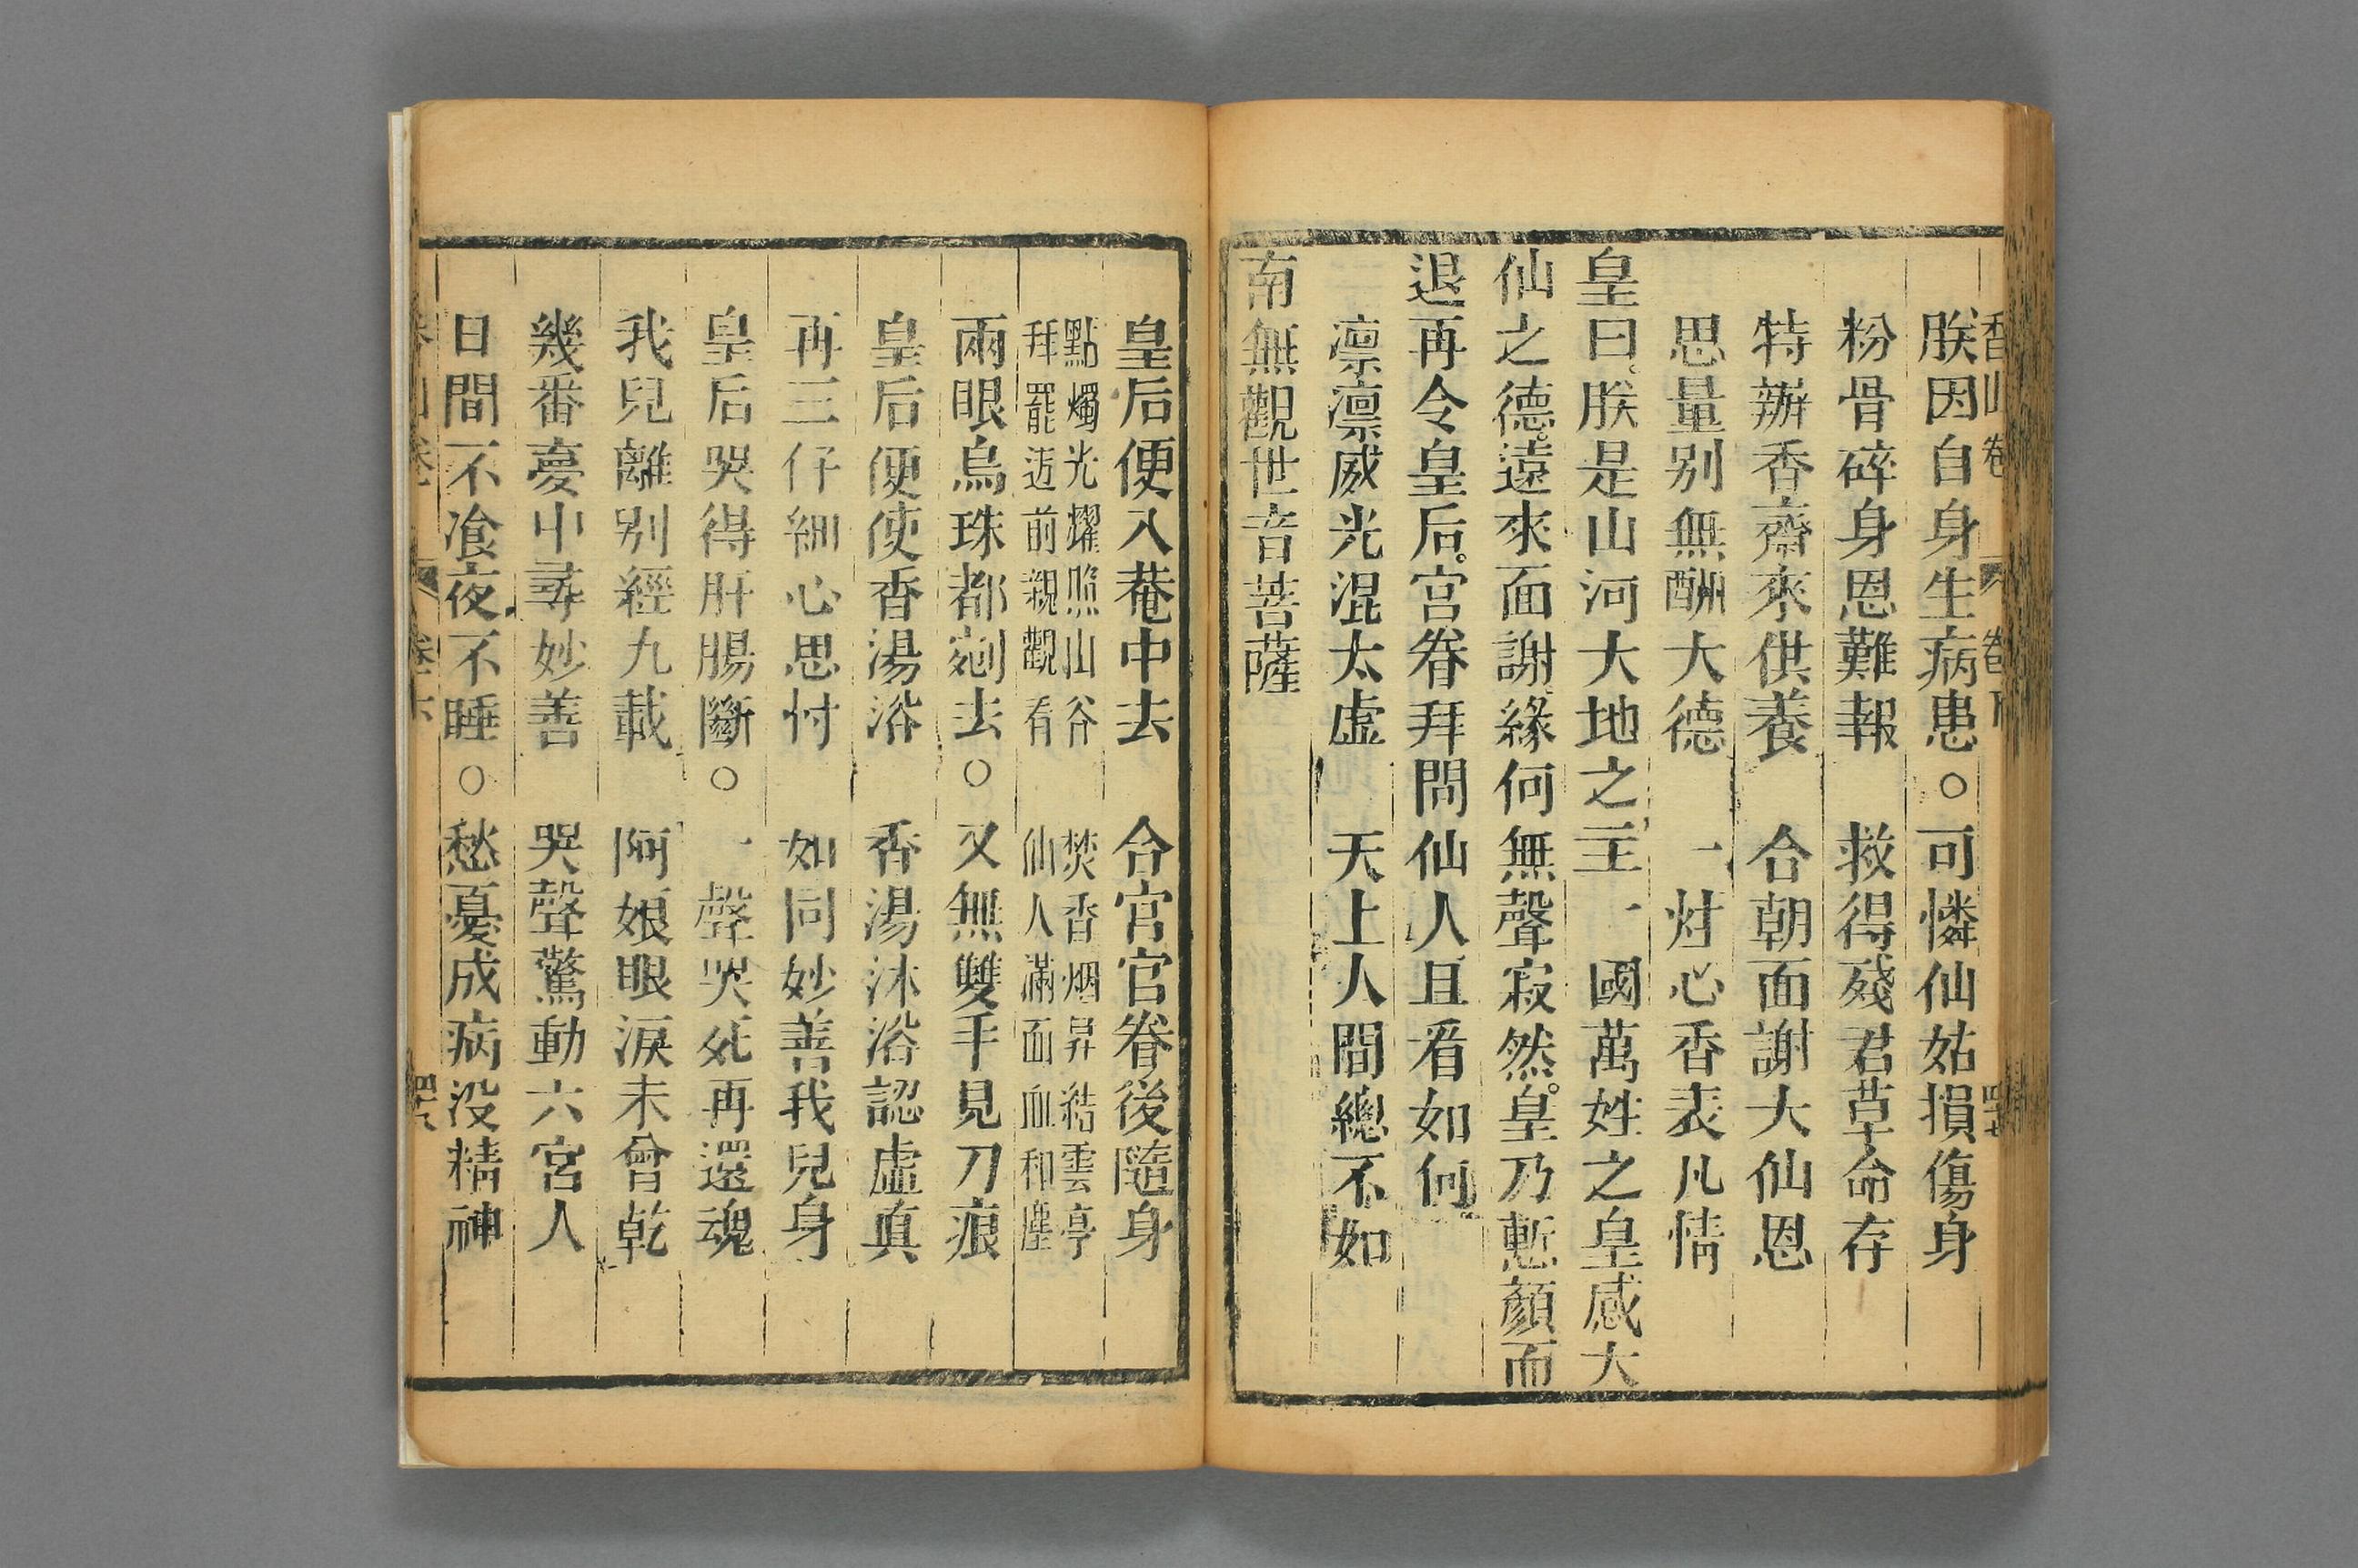 香山卷　卷下　四七
朕因自身生病患○可憐仙姑損傷身
粉骨碎身恩難報　救得殘君草命存
特辦香齋來供養　合朝面謝大仙恩
思量别無酬大德　一炷心香表凡情
皇曰。朕是山河大地之主一國萬姓之皇感大
仙之德。遠來面謝緣何無聲寂然。皇乃慙顔而
退再令皇后。宮眷拜問仙人且看如何
凛凛威光混太虛　天上人間總不如
南無觀世音菩薩
皇后便入菴中去　合官官眷後隨身
點燭光耀照山谷　焚香烟昇結雲亭
拜罷近前親觀看　仙人滿面血和塵
兩眼烏珠都剜去○又無雙手見刀痕
皇后便使香湯浴　香湯沐浴認虛真
再三仔細心思忖　如同妙善我兒身
皇后哭得肝腸斷○一聲哭死再還魂
我兒離别經九載　阿娘眼淚未曾乾
幾番夢中尋妙善　哭聲驚動六宮人
日間不飡夜不睡○愁憂成病没精神